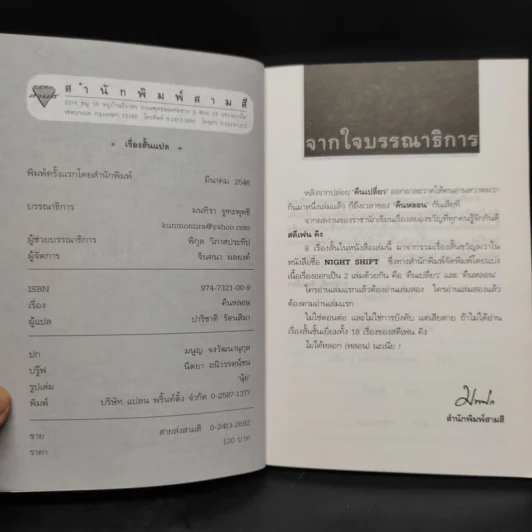 สำนักพิมพ์สามสี
เรื่องสั้นแปล
พิมพ์ครั้งแรกโดยสำนักพิมพ์ มีนาคม 2546
บรรณาธิการ มนทิรา
kunmontira@yahoo.com
ผู้ช่วยบรรณาธิการ พิกุล
ผู้จัดการ จินตนา
ISBN 974-7321-00-9
เรื่อง คืนหลอน
ผู้แปล ปาริชาติ รัตนสีมา
ปก มนูญ จงวัฒนานุกูล
ปรู๊ฟ นิตยา
รูปเล่ม
พิมพ์ บริษัท แปลน พริ้นท์ติ้ง จำกัด 0-2587-1377
ขาย สายส่งสามสี 0-2413-2692
ราคา 120 บาท
จากใจบรรณาธิการ
หลังจากปล่อย 'คืนเปลี่ยว' ออกอาละวาดให้คนอ่านหวาดผวา
กันมาหนึ่งเล่มแล้ว ก็ถึงเวลาของ 'คืนหลอน' กันเสียที
จากผลงานของราชานักเขียนเรื่องสยองขวัญที่ทุกคนรู้จักกันดี
สตีเฟน คิง
8 เรื่องสั้นในหนังสือเล่มนี้ มาจากรวมเรื่องสั้นขวัญผวาใน
หนังสือชื่อ NIGHT SHIFT ซึ่งทางสำนักพิมพ์จัดพิมพ์โดยแบ่ง
เนื้อเรื่องออกเป็น 2 เล่มด้วยกัน คือ 'คืนเปลี่ยว' และ 'คืนหลอน'
ใครอ่านเล่มแรกแล้วต้องอ่านเล่มสอง ใครอ่านเล่มสองแล้ว
ต้องตามอ่านเล่มแรก
ไม่ใช่ตอนต่อ และไม่ใช่การบังคับ แต่เสียดาย ถ้าไม่ได้อ่าน
เรื่องสั้นชั้นเยี่ยมทั้ง 16 เรื่องของสตีเฟน คิง
ไม่ได้หลอก (หลอน) นะเนี่ย !
สำนักพิมพ์สามสี